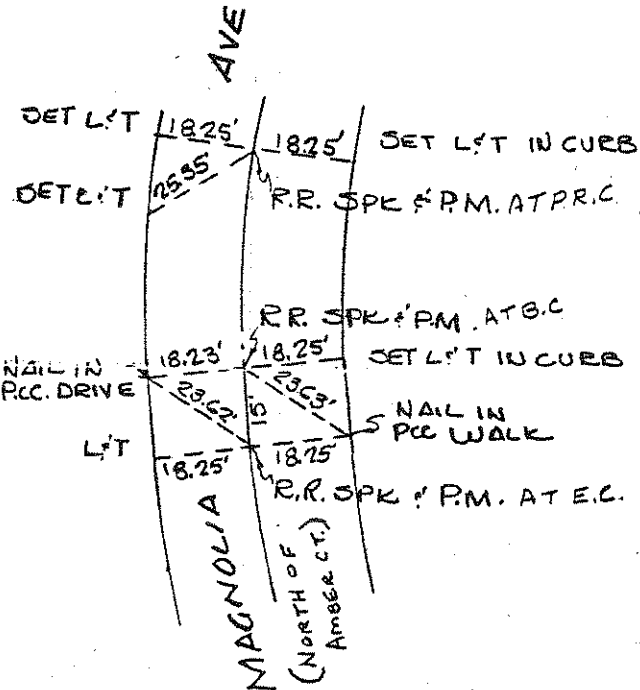 AVE
SET L&T
18.25'
18.25'
SET L&T IN CURB
SET L&T
25.95'
R.R. SPK & P.M. AT P.R.C.
R.R. SPK & P.M. AT B.C
NAIL IN
P.C.C. DRIVE
18.23'
18.25'
SET L&T IN CURB
23.62'
15'
23.63'
NAIL IN
PCC WALK
L&T
18.25'
18.25
R.R. SPK & P.M. AT E.C.
MAGNOLIA
(NORTH OF
AMBER CT.)